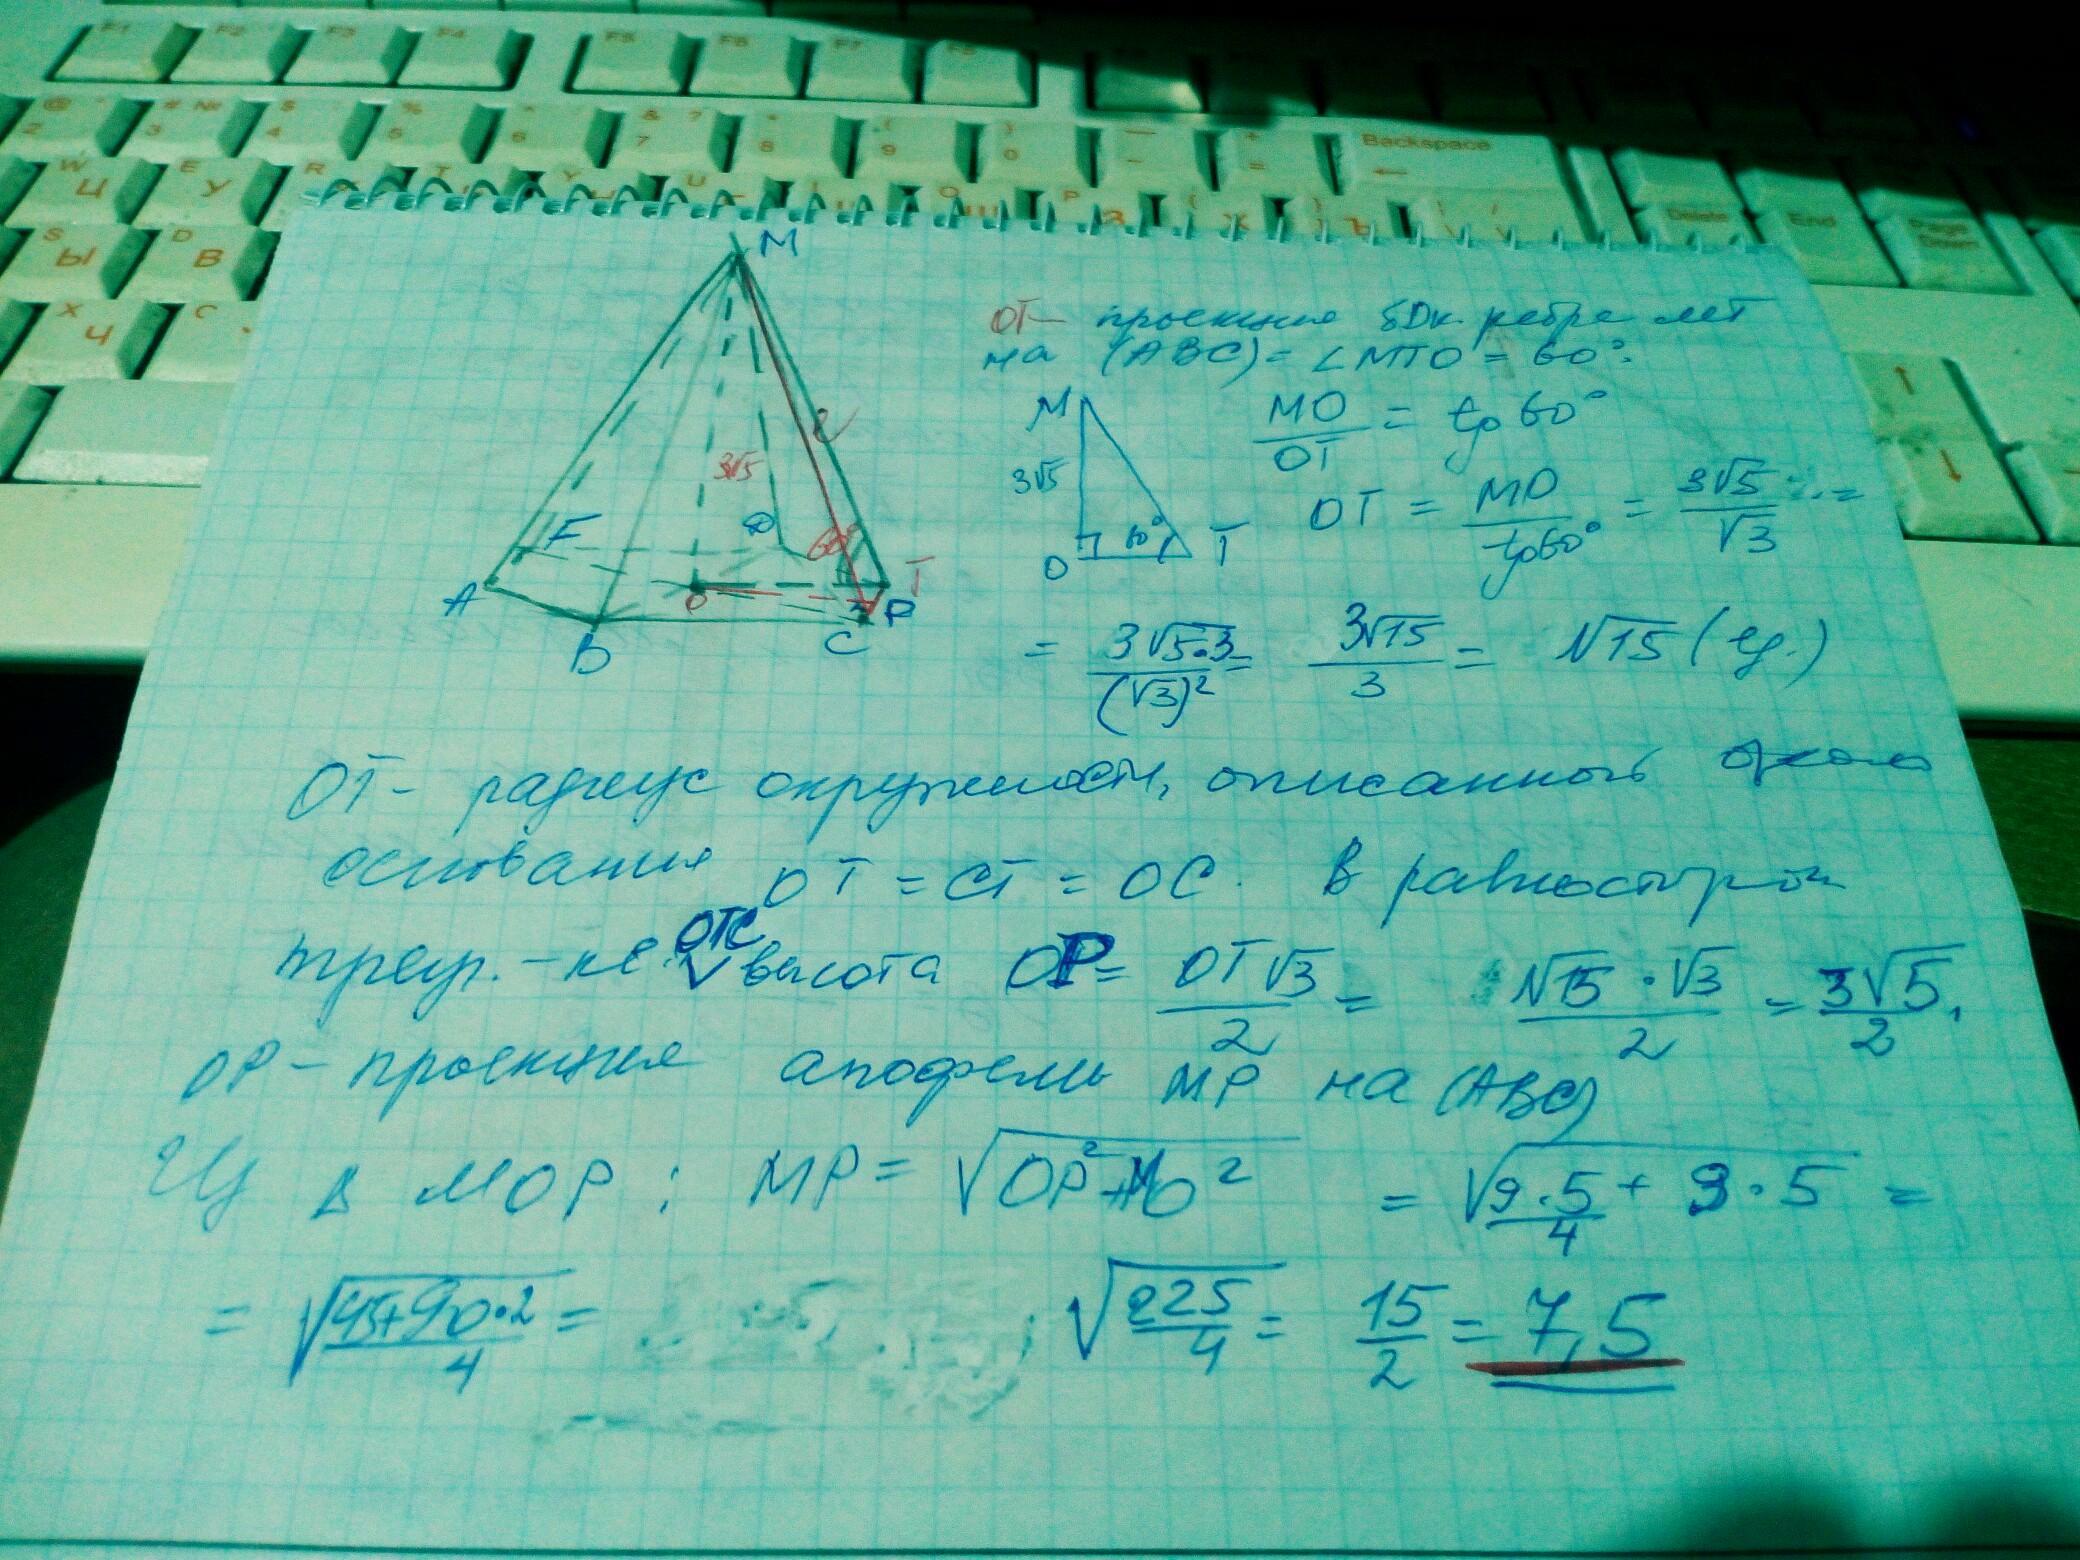 F1 F2 F3 F4 F5 F6 F7 F8
@ 2 # № 3 $ 4 % 5 ^ 6 & ? 7 * 8 ( 9 ) 0 — - + = Backspace
W Ц E У R T Y U O P Delete End Page Down
S Ы D В
X Ч C
M
3√5
60°
F
D
T
A
O
P
B
C
OT- проекция бок. ребра MT
на (ABC) = ∠MTO = 60°.
M
3√5
O
60°
T
MO/OT = tg 60°
OT = MO/tg60° = 3√5/√3 =
= 3√5·3/(√3)² = 3√15/3 = √15 (ед.)
OT- радиус окружности, описанной около
основания OT = CT = OC. В равностороннем
треуг.-ке OTC высота OP = OT√3/2 = √15·√3/2 = 3√5/2,
OP- проекция апофемы MP на (ABC)
Из Δ MOP: MP = √(OP²+MO²) = √(9·5/4 + 9·5) =
= √(45+90·2/4) = √(225/4) = 15/2 = 7,5